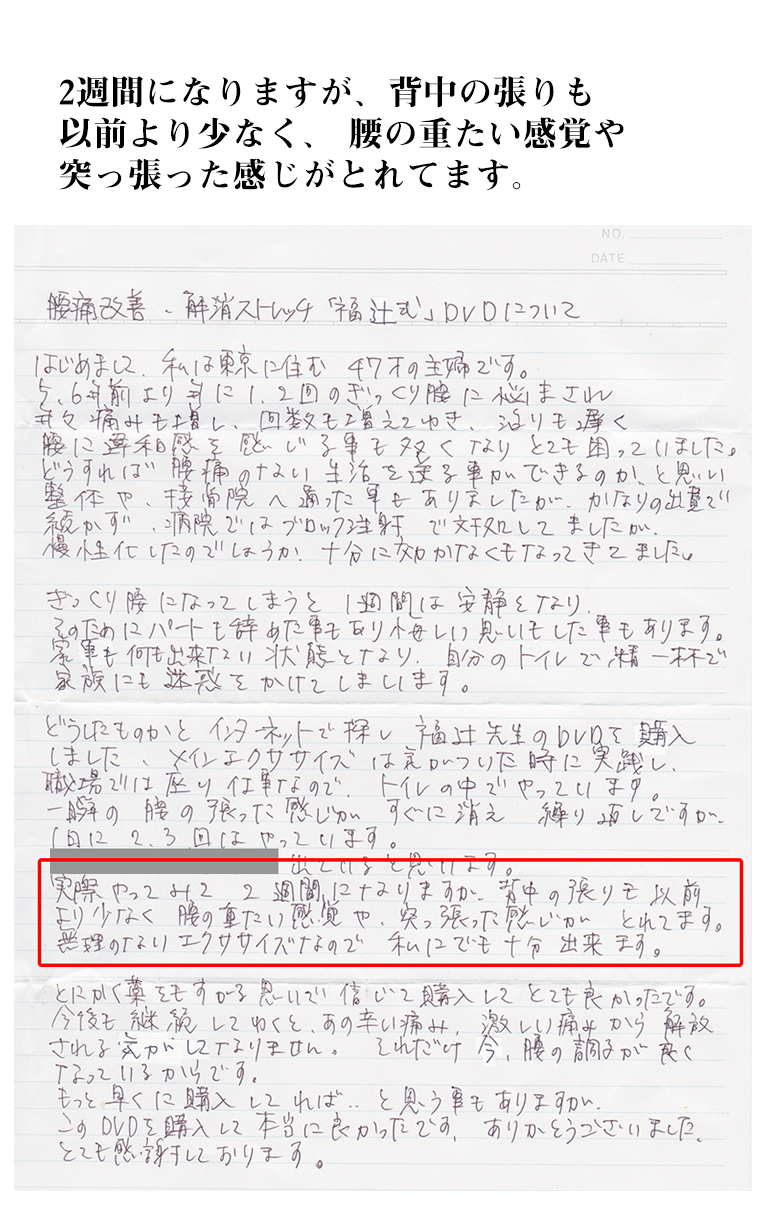 2週間になりますが、背中の張りも
以前より少なく、 腰の重たい感覚や
突っ張った感じがとれてます。
NO.
DATE
腰痛改善、解消ストレッチ「福辻式」DVDについて
はじめまして、私は東京に住む 47才の主婦です。
5、6年前より年に1、2回のぎっくり腰に悩まされ
年々痛みも増し、回数も増えてゆき、治りも遅く
腰に違和感を感じる事も多くなりとても困っていました。
どうすれば腰痛のない生活を送る事ができるのか、と思い
整体や、接骨院へ通った事もありましたが、かなりの出費で
続かず、病院ではブロック注射で対処してましたが、
慢性化したのでしょうか、十分に効かなくもなってきてました。
ぎっくり腰になってしまうと 1週間は安静となり、
そのためにパートも辞めた事もあり悔しい思いもした事もあります。
家事も何も出来ない状態となり、自分のトイレで精一杯で
家族にも迷惑をかけてしまいます。
どうしたものかとインターネットで探し 福辻先生のDVDを購入
しました、メインエクササイズは気がついた時に実践し、
職場では座り仕事なので、トイレの中でやっています。
一瞬の腰の張った感じが すぐに消え 繰り返しですが、
1日に2、3回はやっています。
出ていると思います。
実際やってみて 2週間になりますが、背中の張りも以前
より少なく 腰の重たい感覚や、突っ張った感じが とれてます。
無理のないエクササイズなので 私にでも十分出来ます。
とにかく藁をもすがる思いで信じて購入してとても良かったです。
今後も継続してゆくと、あの辛い痛み、激しい痛みから解放
される気がしてなりません。 それだけ今、腰の調子が良く
なっているからです。
もっと早くに購入してれば‥と思う事もありますが、
このDVDを購入して本当に良かったです、ありがとうございました、
とても感謝しております。